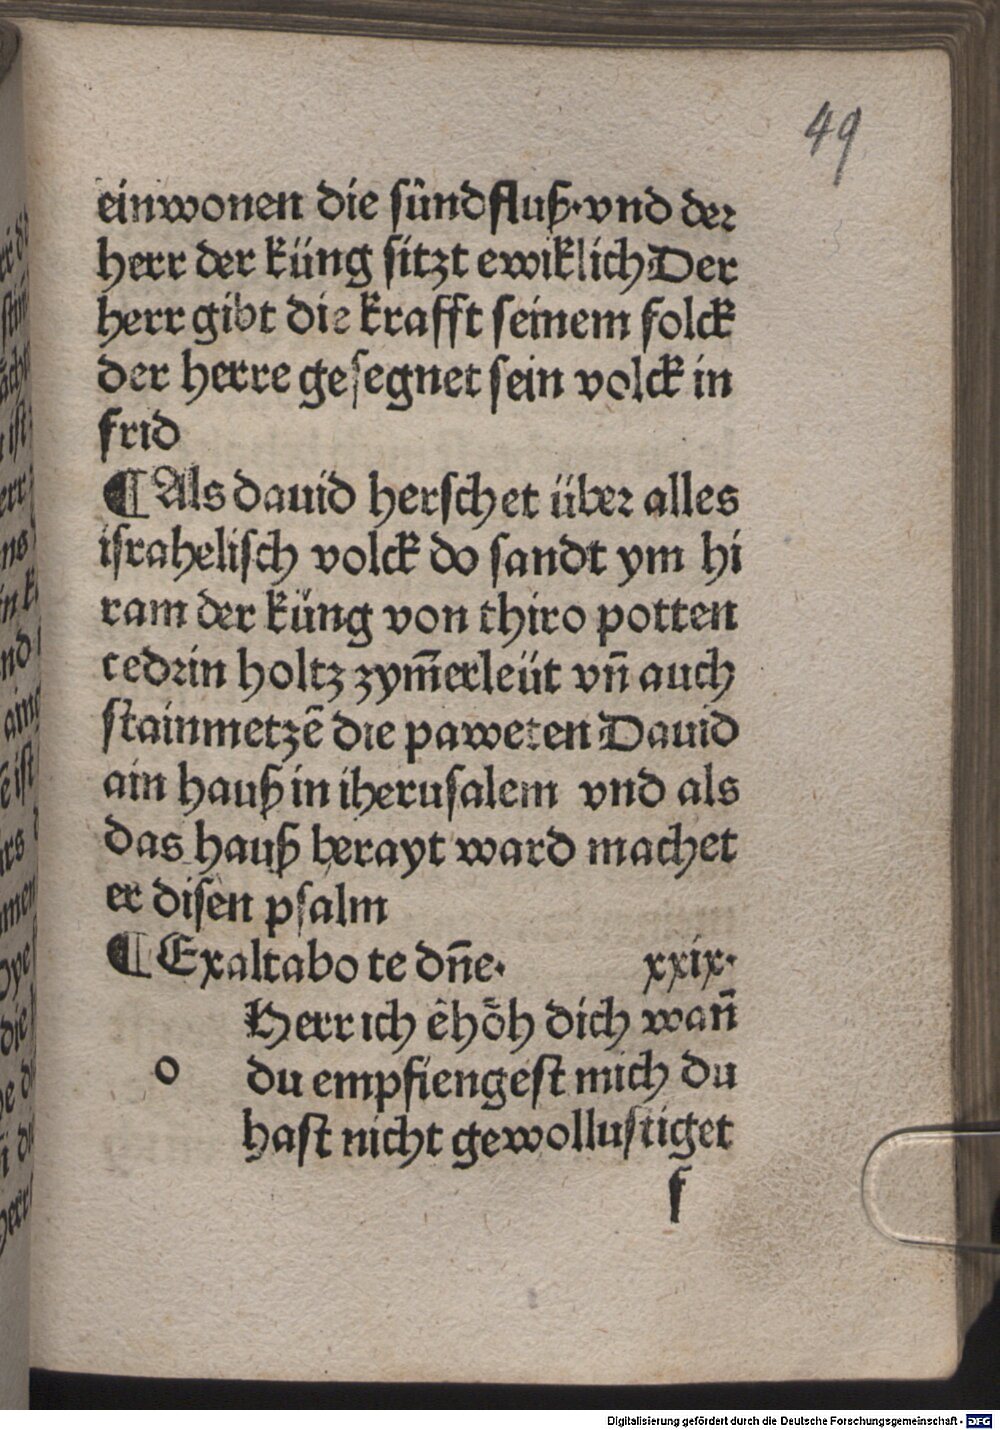 49
einwonen die sündfluß·vnd der
herr der küng sitzt ewiklich Der
herr gibt die krafft seinem folck
der herre gesegnet sein volck in
frid
¶ Als dauid herschet über alles
israhelisch volck do sandt ym hi
ram der küng von thiro potten
cedrin holtz zym̄erleüt vn̄ auch
stainmetzē die paweten Dauid
ain hauß in iherusalem vnd als
das hauß berayt ward machet
er disen psalm
¶ Exaltabo te dn̄e· xxix·
Herr ich ēhȫh dich wan̄
o du empfiengest mich du
hast nicht gewollustiget
f
Digitalisierung gefördert durch die Deutsche Forschungsgemeinschaft - DFG